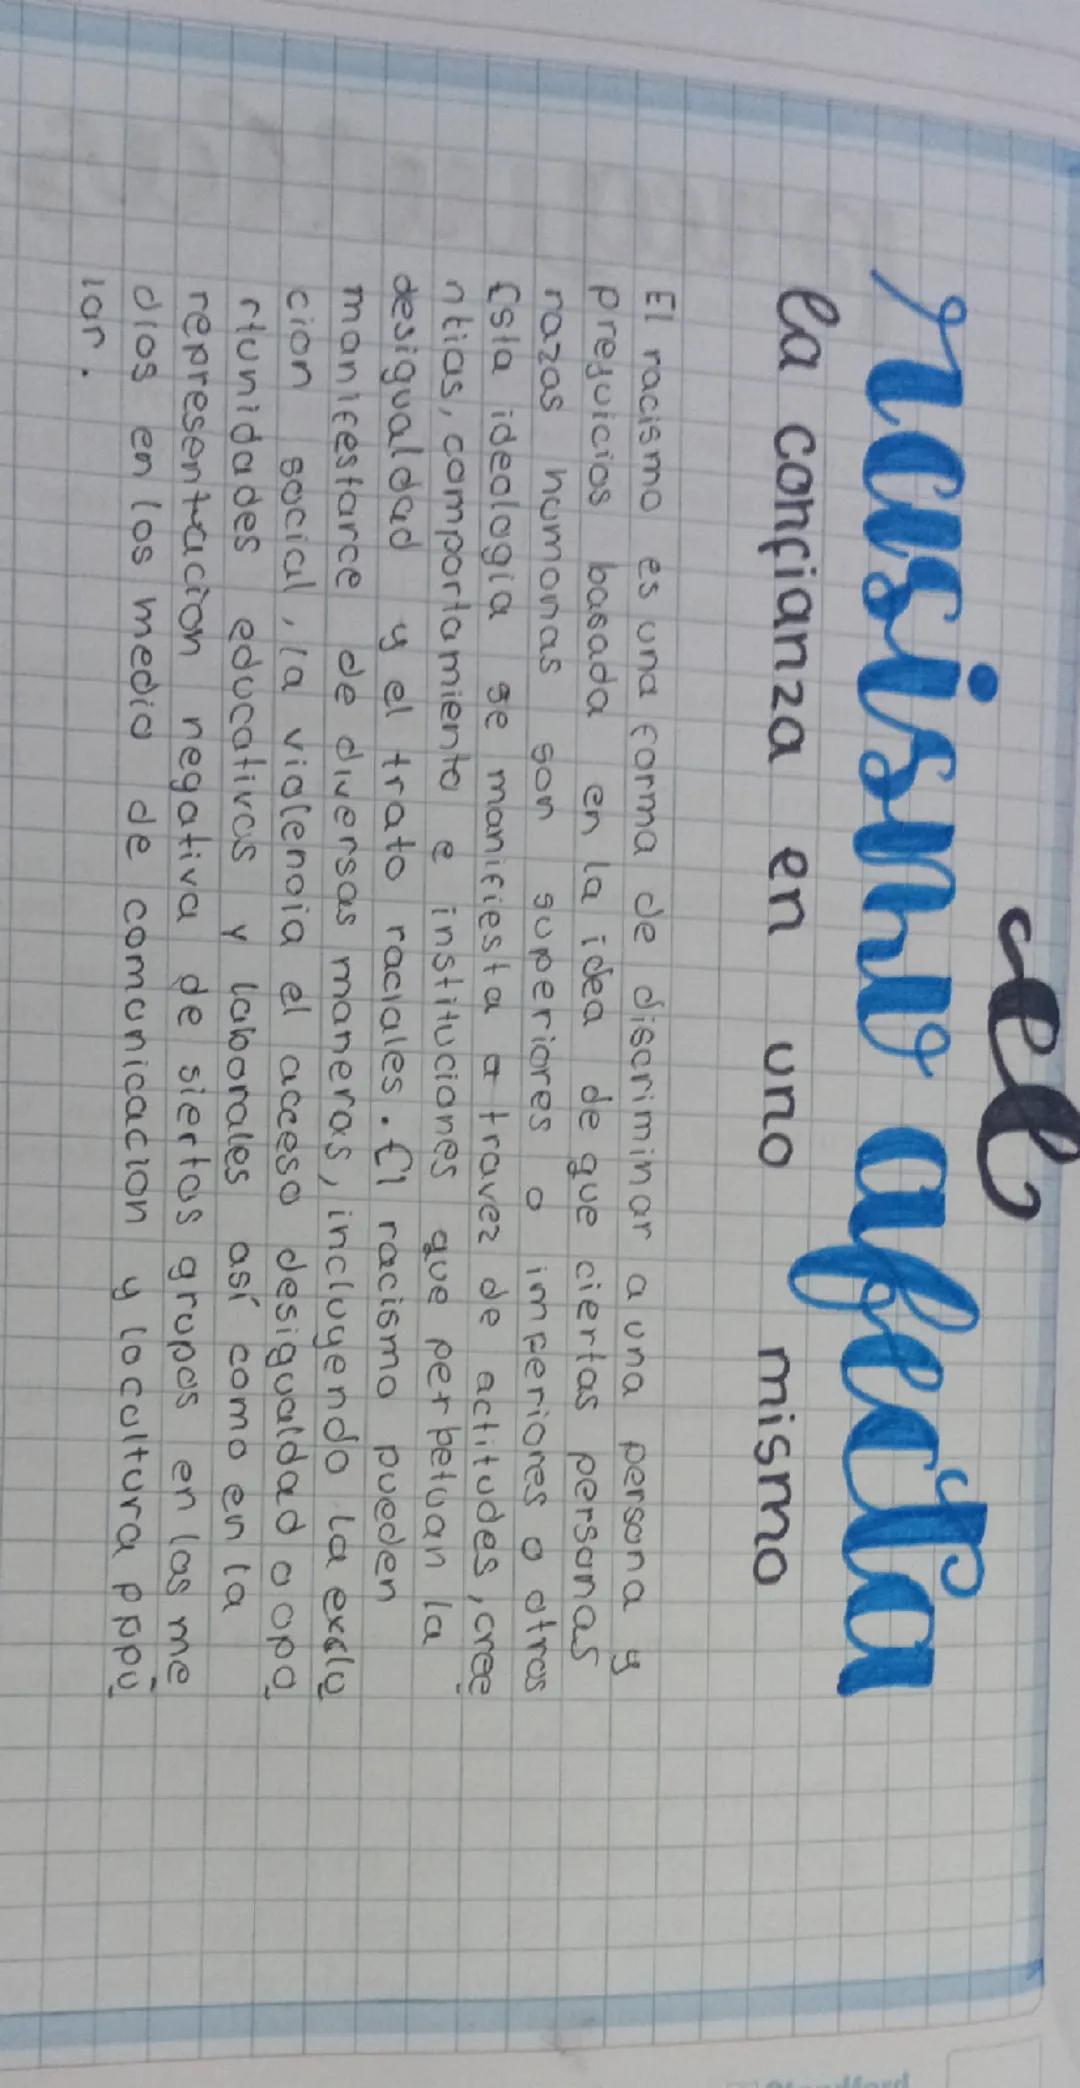 el
racismo afecta
la confianza en uno mismo
El racismo es una forma de discriminar a una persona y
prejuicios basada en la idea de que ciertas personas
razas humanas son superiores o inferiores o otras
Esta ideologia se manifiesta a travez de actitudes, cree
ntias, comportamiento e instituciones que perpetuan la
desigualdad y el trato raciales. El racismo pueden
manifestarce de diversas maneras, incluyendo la exclu
cion social, la violencia el acceso desigualdad o opo
rtunidades educativas y laborales así como en la
representacion negativa de siertos grupos en las me
dios en los medio de comunicacion y la cultura popu
lar.